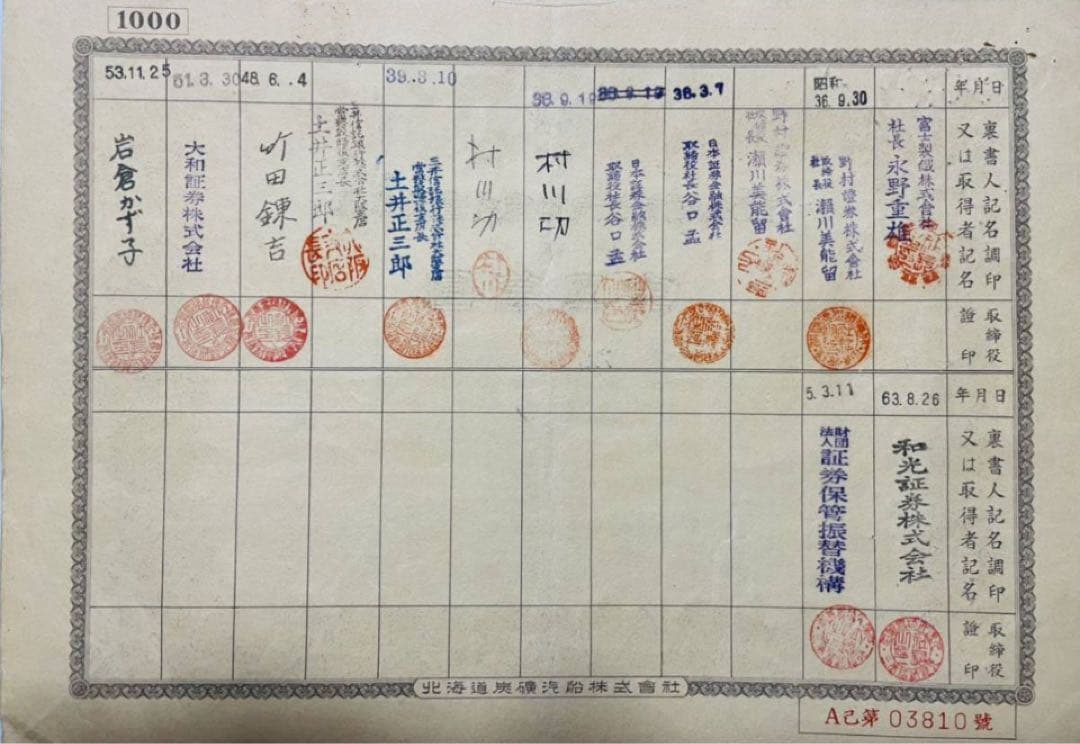 1000
年月日
裏書人記名調印
又は取得者記名
取締役
證印
富士製鐵株式會社
社長 永野重雄
昭和
36.9.30
野村證券株式會社
取締役社長 瀬川美能留
野村證券株式會社
取締役社長 瀬川美能留
38.3.7
日本証券金融株式會社
取締役社長谷口孟
38.9.19
日本証券金融株式會社
取締役社長谷口孟
38.9.19
村川功
村川功
39.3.10
土井正三郎
土井正三郎
48.6.-4
竹田錬吉
51.3.30
大和証券株式会社
53.11.25
岩倉かず子
年月日
裏書人記名調印
又は取得者記名
取締役
證印
63.8.26
和光証券株式会社
5.3.11
財団法人
証券保管振替機構
北海道炭礦汽船株式會社
A己第03810號